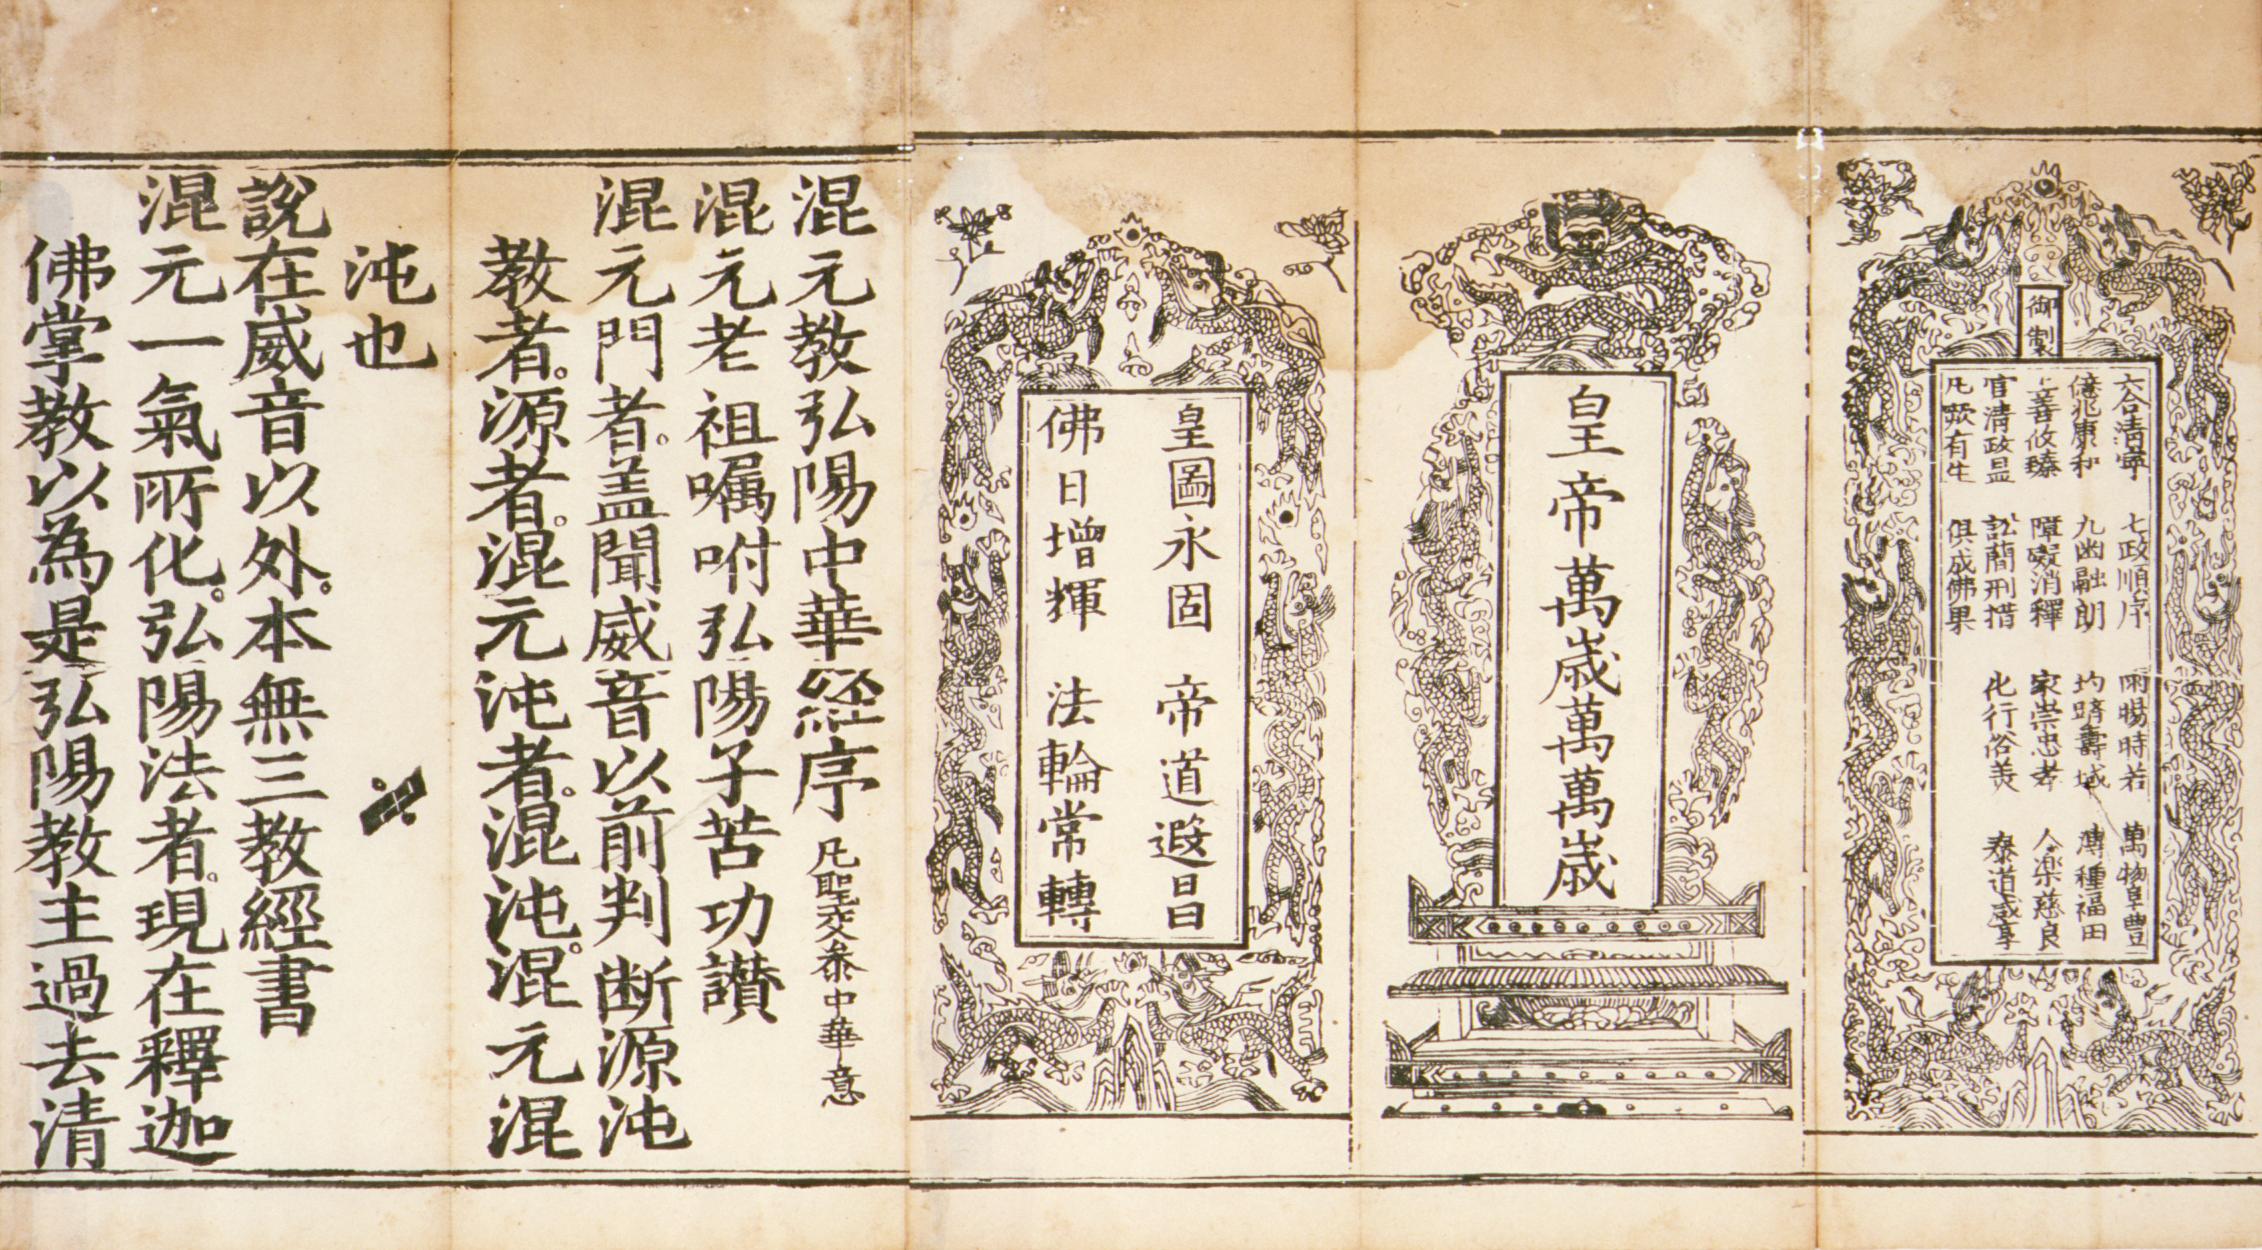 御製
六合清寧 七政順序 雨暘時若 萬物阜豐
億兆康和 九幽融朗 均躋壽域 溥種福田
善攸臻 障礙消釋 家崇忠孝 人樂慈良
官清政 訟簡刑措 化行俗美 泰道咸享
凡厥有生 俱成佛果
皇帝萬歲萬萬歲
皇圖永固 帝道遐昌
佛日增輝 法輪常轉
混元教弘陽中華經序 凡聖交泰中華意
混元老祖囑咐弘陽子苦功讃
混元門者。盖聞威音以前判断源沌
教者。源者。混元沌者。混沌。混元混
沌也
說在威音以外。本無三教經書
混元一氣所化。弘陽法者。現在釋迦
佛掌教以為是弘陽教主過去清